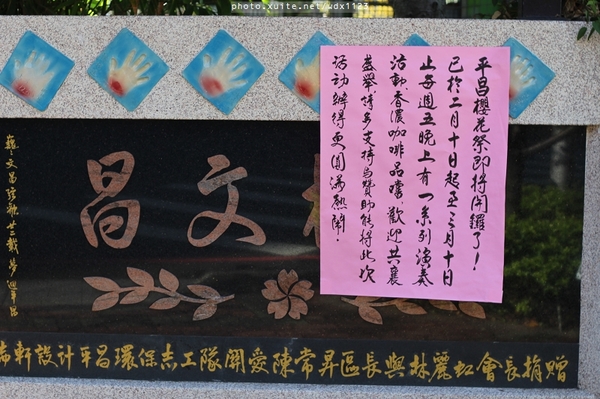 photo.xuite.net/wdx1123
平昌櫻花祭即將開鑼了!
已於二月十日起至三月十日
止每週五晚上有一系列演奏
活動.香濃咖啡品嚐.歡迎共襄
盛舉.請多支持與贊助.能將此次
活動辦得更圓滿熱鬧.
昌文
軒設計平昌環保志工隊關愛陳常昇區長與林麗虹會長捐贈